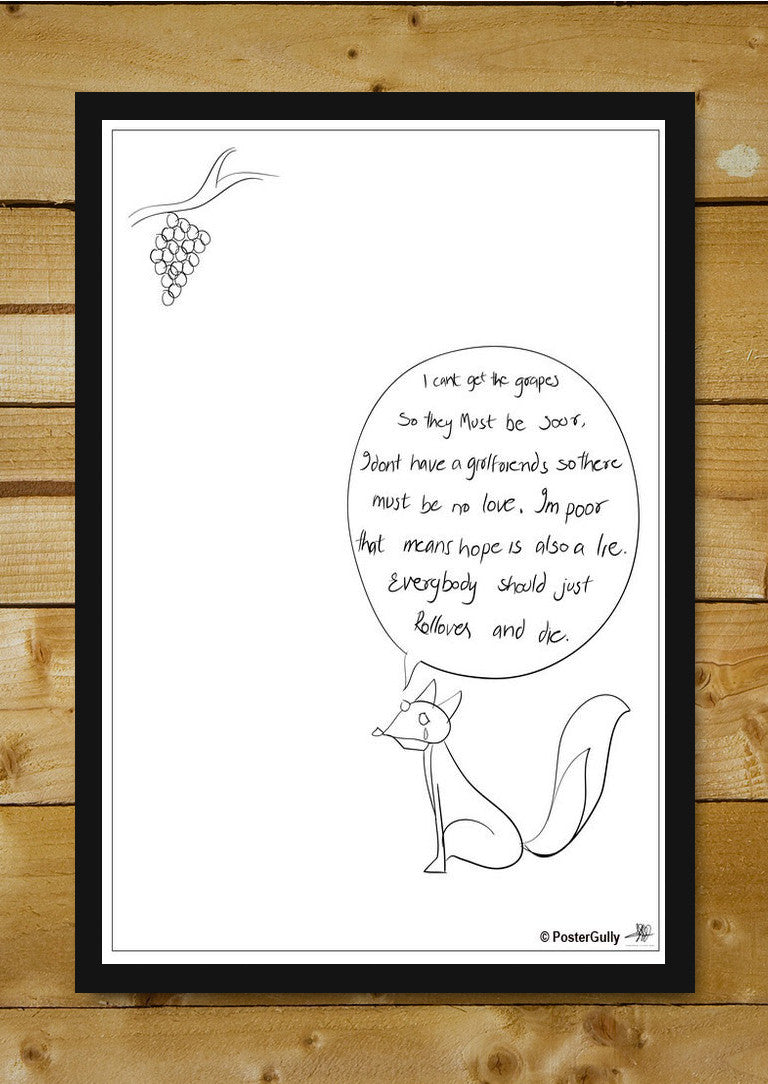 I cant get the grapes
So they Must be sour,
I dont have a girlfriends so there
must be no love. Im poor
that means hope is also a lie.
Everybody should just
Rollover and die.
© PosterGully